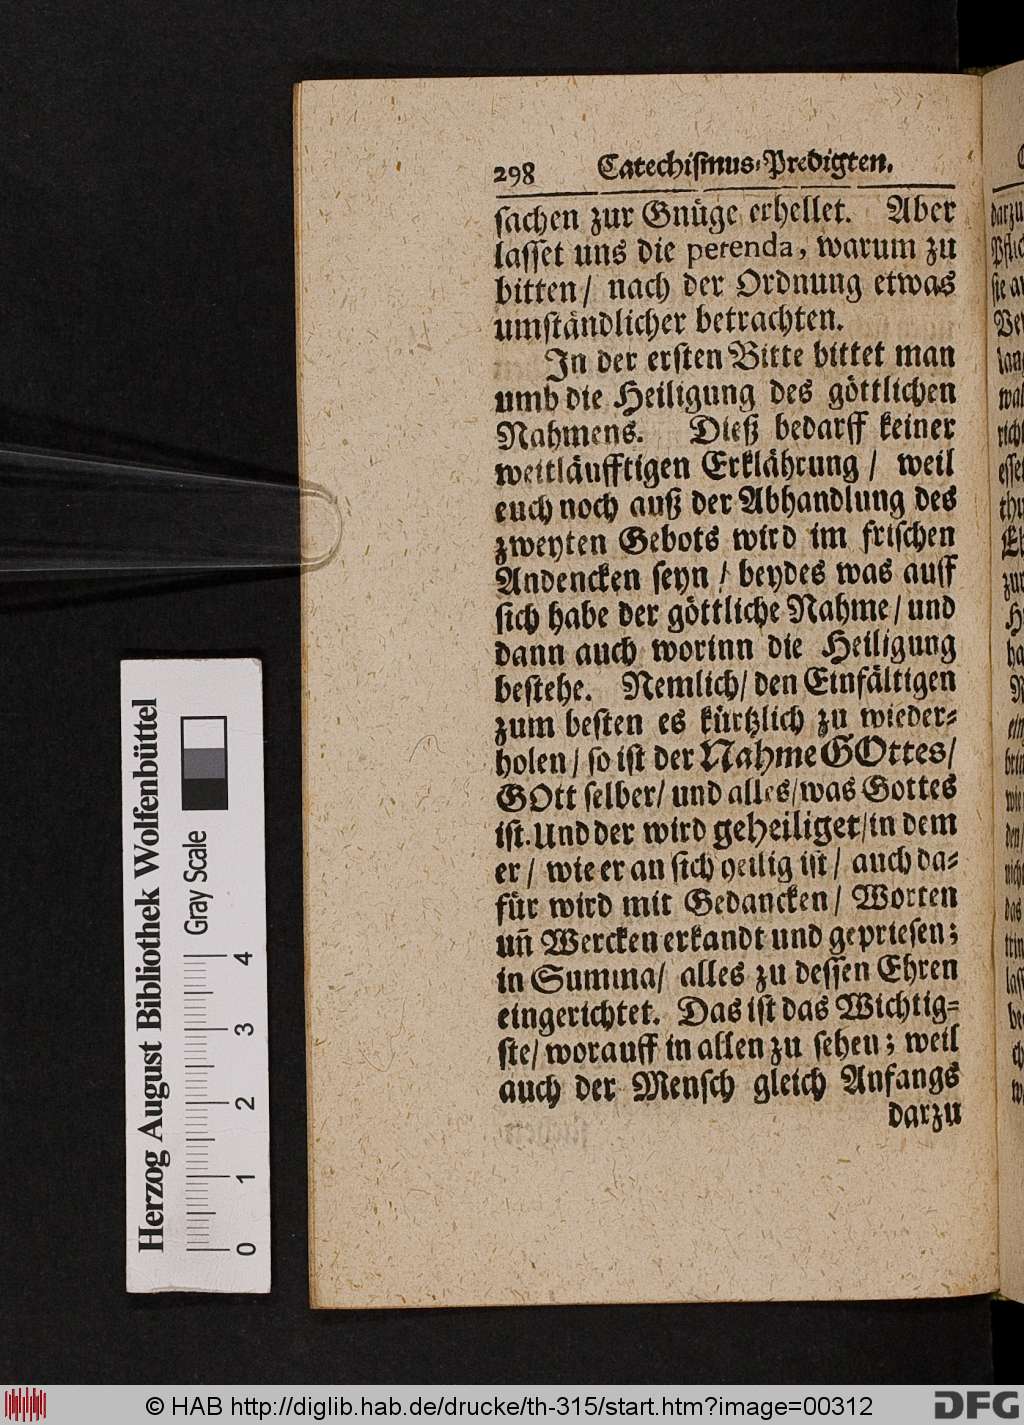 298 Catechiſmus-Predigten.
ſachen zur Gnüge erhellet. Aber
laſſet uns die perenda, warum zu
bitten/ nach der Ordnung etwas
umſtändlicher betrachten.
In der erſten Bitte bittet man
umb die Heiligung des göttlichen
Nahmens. Dieß bedarff keiner
weitläufftigen Erklährung / weil
euch noch auß der Abhandlung des
zweyten Gebots wird im friſchen
Andencken ſeyn / beydes was auff
ſich habe der göttliche Nahme/ und
dann auch worinn die Heiligung
beſtehe. Nemlich/ den Einfältigen
zum beſten es kürtzlich zu wieder-
holen/ ſo iſt der Nahme GOttes/
GOtt ſelber/ und alles/was Gottes
iſt. Und der wird geheiliget/in dem
er/ wie er an ſich heilig iſt/ auch da-
für wird mit Gedancken/ Worten
uñ Wercken erkandt und geprieſen;
in Summa/ alles zu deſſen Ehren
eingerichtet. Das iſt das Wichtig-
ſte/ worauff in allen zu ſehen; weil
auch der Menſch gleich Anfangs
darzu
Herzog August Bibliothek Wolfenbüttel
Gray Scale
0 1 2 3 4
© HAB http://diglib.hab.de/drucke/th-315/start.htm?image=00312
DFG